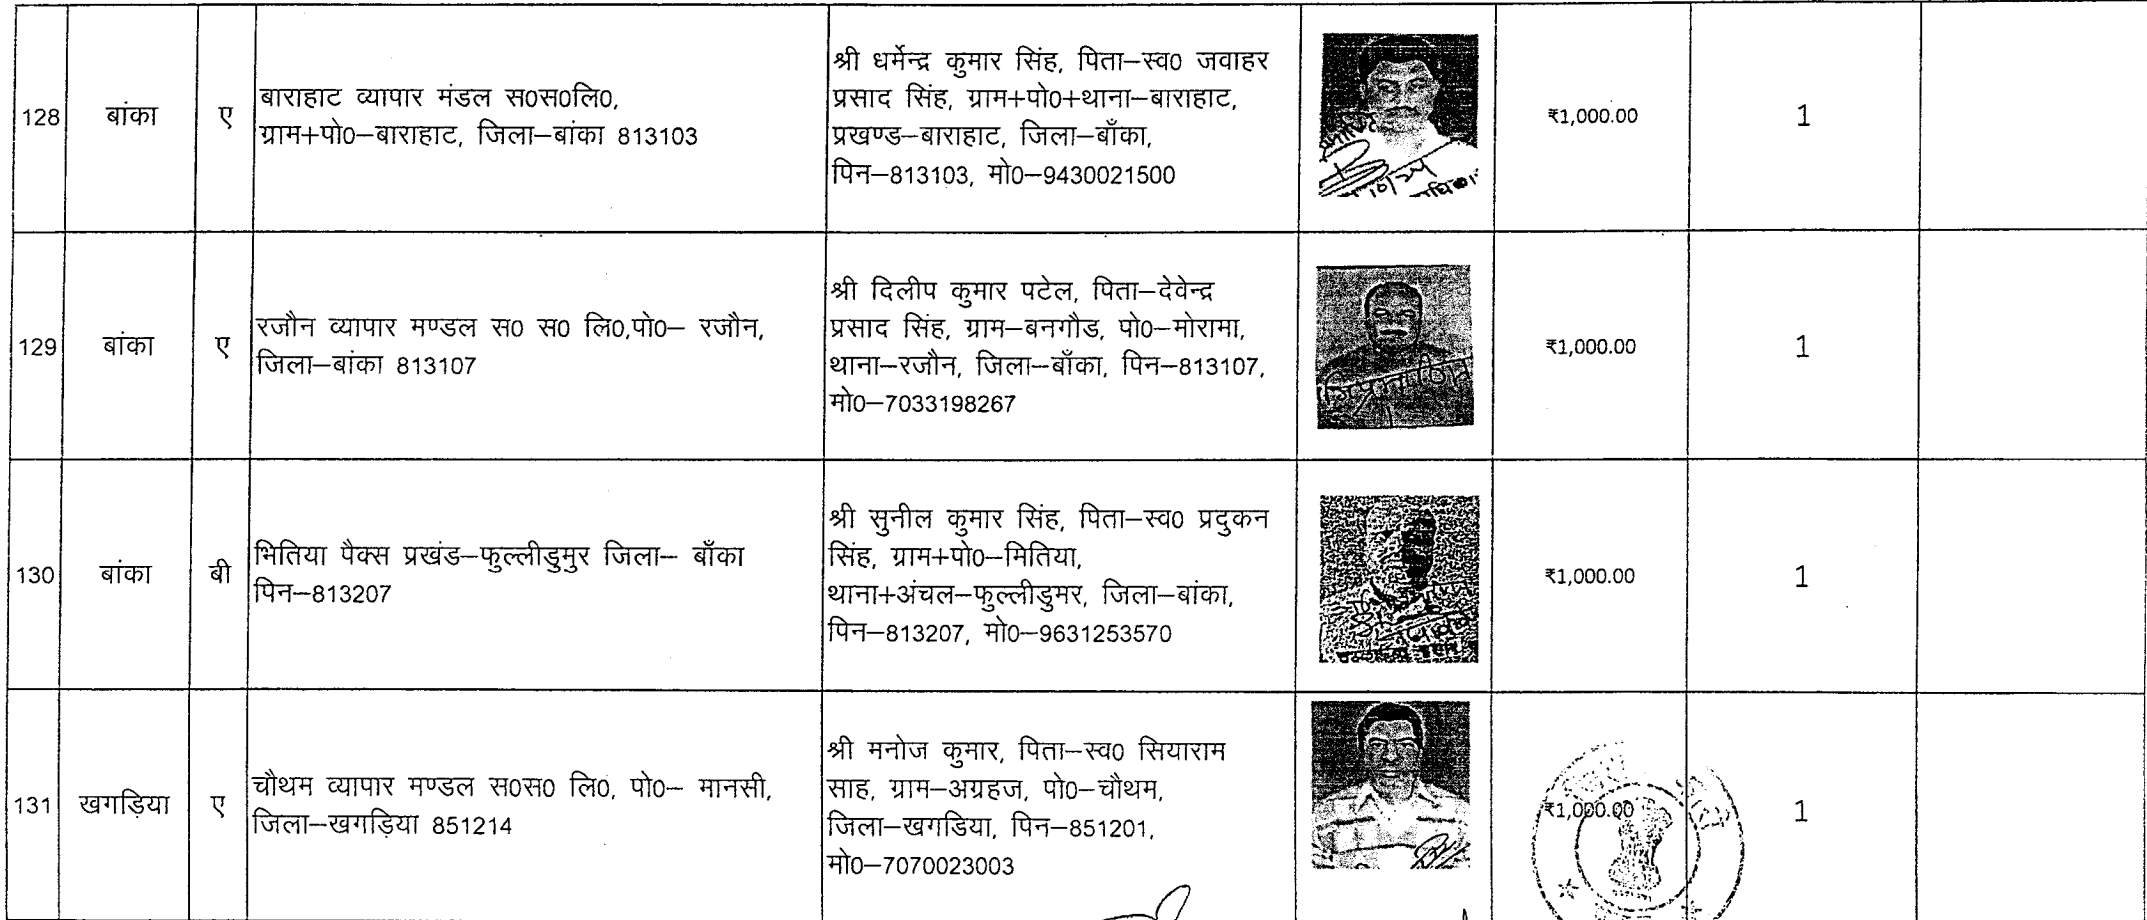 128
बांका
ए
बाराहाट व्यापार मंडल स0स0लि0,
ग्राम+पो0–बाराहाट, जिला–बांका 813103
श्री धर्मेन्द्र कुमार सिंह, पिता–स्व0 जवाहर
प्रसाद सिंह, ग्राम+पो0+थाना–बाराहाट,
प्रखण्ड–बाराहाट, जिला–बाँका,
पिन–813103, मो0–9430021500
₹1,000.00
1
129
बांका
ए
रजौन व्यापार मण्डल स0 स0 लि0,पो0– रजौन,
जिला–बांका 813107
श्री दिलीप कुमार पटेल, पिता–देवेन्द्र
प्रसाद सिंह, ग्राम–बनगौड, पो0–मोरामा,
थाना–रजौन, जिला–बाँका, पिन–813107,
मो0–7033198267
₹1,000.00
1
130
बांका
बी
भितिया पैक्स प्रखंड–फुल्लीडुमुर जिला– बाँका
पिन–813207
श्री सुनील कुमार सिंह, पिता–स्व0 प्रदुकन
सिंह, ग्राम+पो0–मितिया,
थाना+अंचल–फुल्लीडुमर, जिला–बांका,
पिन–813207, मो0–9631253570
₹1,000.00
1
131
खगड़िया
ए
चौथम व्यापार मण्डल स0स0 लि0, पो0– मानसी,
जिला–खगड़िया 851214
श्री मनोज कुमार, पिता–स्व0 सियाराम
साह, ग्राम–अग्रहज, पो0–चौथम,
जिला–खगडिया, पिन–851201,
मो0–7070023003
₹1,000.00
1